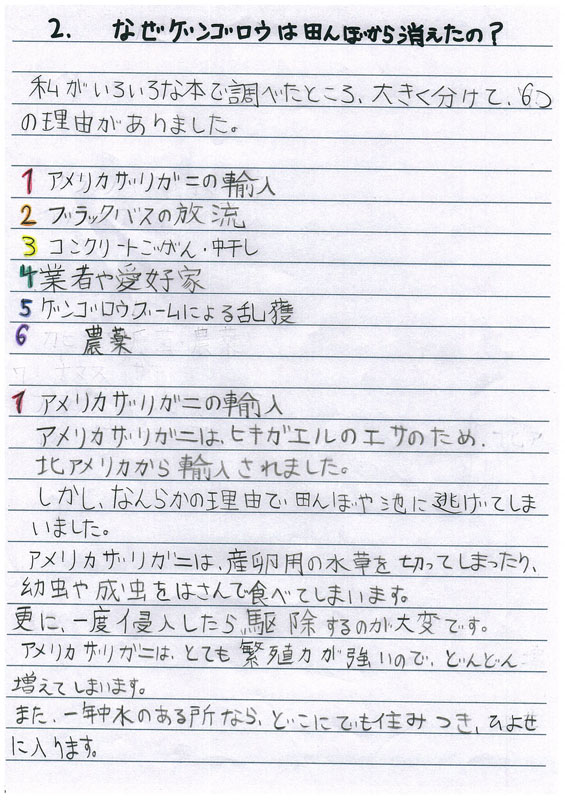 2. なぜゲンゴロウは田んぼから消えたの?
私がいろいろな本で調べたところ、大きく分けて、6つ
の理由がありました。
1 アメリカザリガニの輸入
2 ブラックバスの放流
3 コンクリートごがん・中干し
4 業者や愛好家
5 ゲンゴロウブームによる乱獲
6 農薬
1 アメリカザリガニの輸入
アメリカザリガニは、ヒキガエルのエサのため、
北アメリカから輸入されました。
しかし、なんらかの理由で田んぼや池に逃げてしま
いました。
アメリカザリガニは、産卵用の水草を切ってしまったり、
幼虫や成虫をはさんで食べてしまいます。
更に、一度侵入したら駆除するのが大変です。
アメリカザリガニは、とても繁殖力が強いので、どんどん
増えてしまいます。
また、一年中水のある所なら、どこにでも住みつき、ひよせ
に入ります。